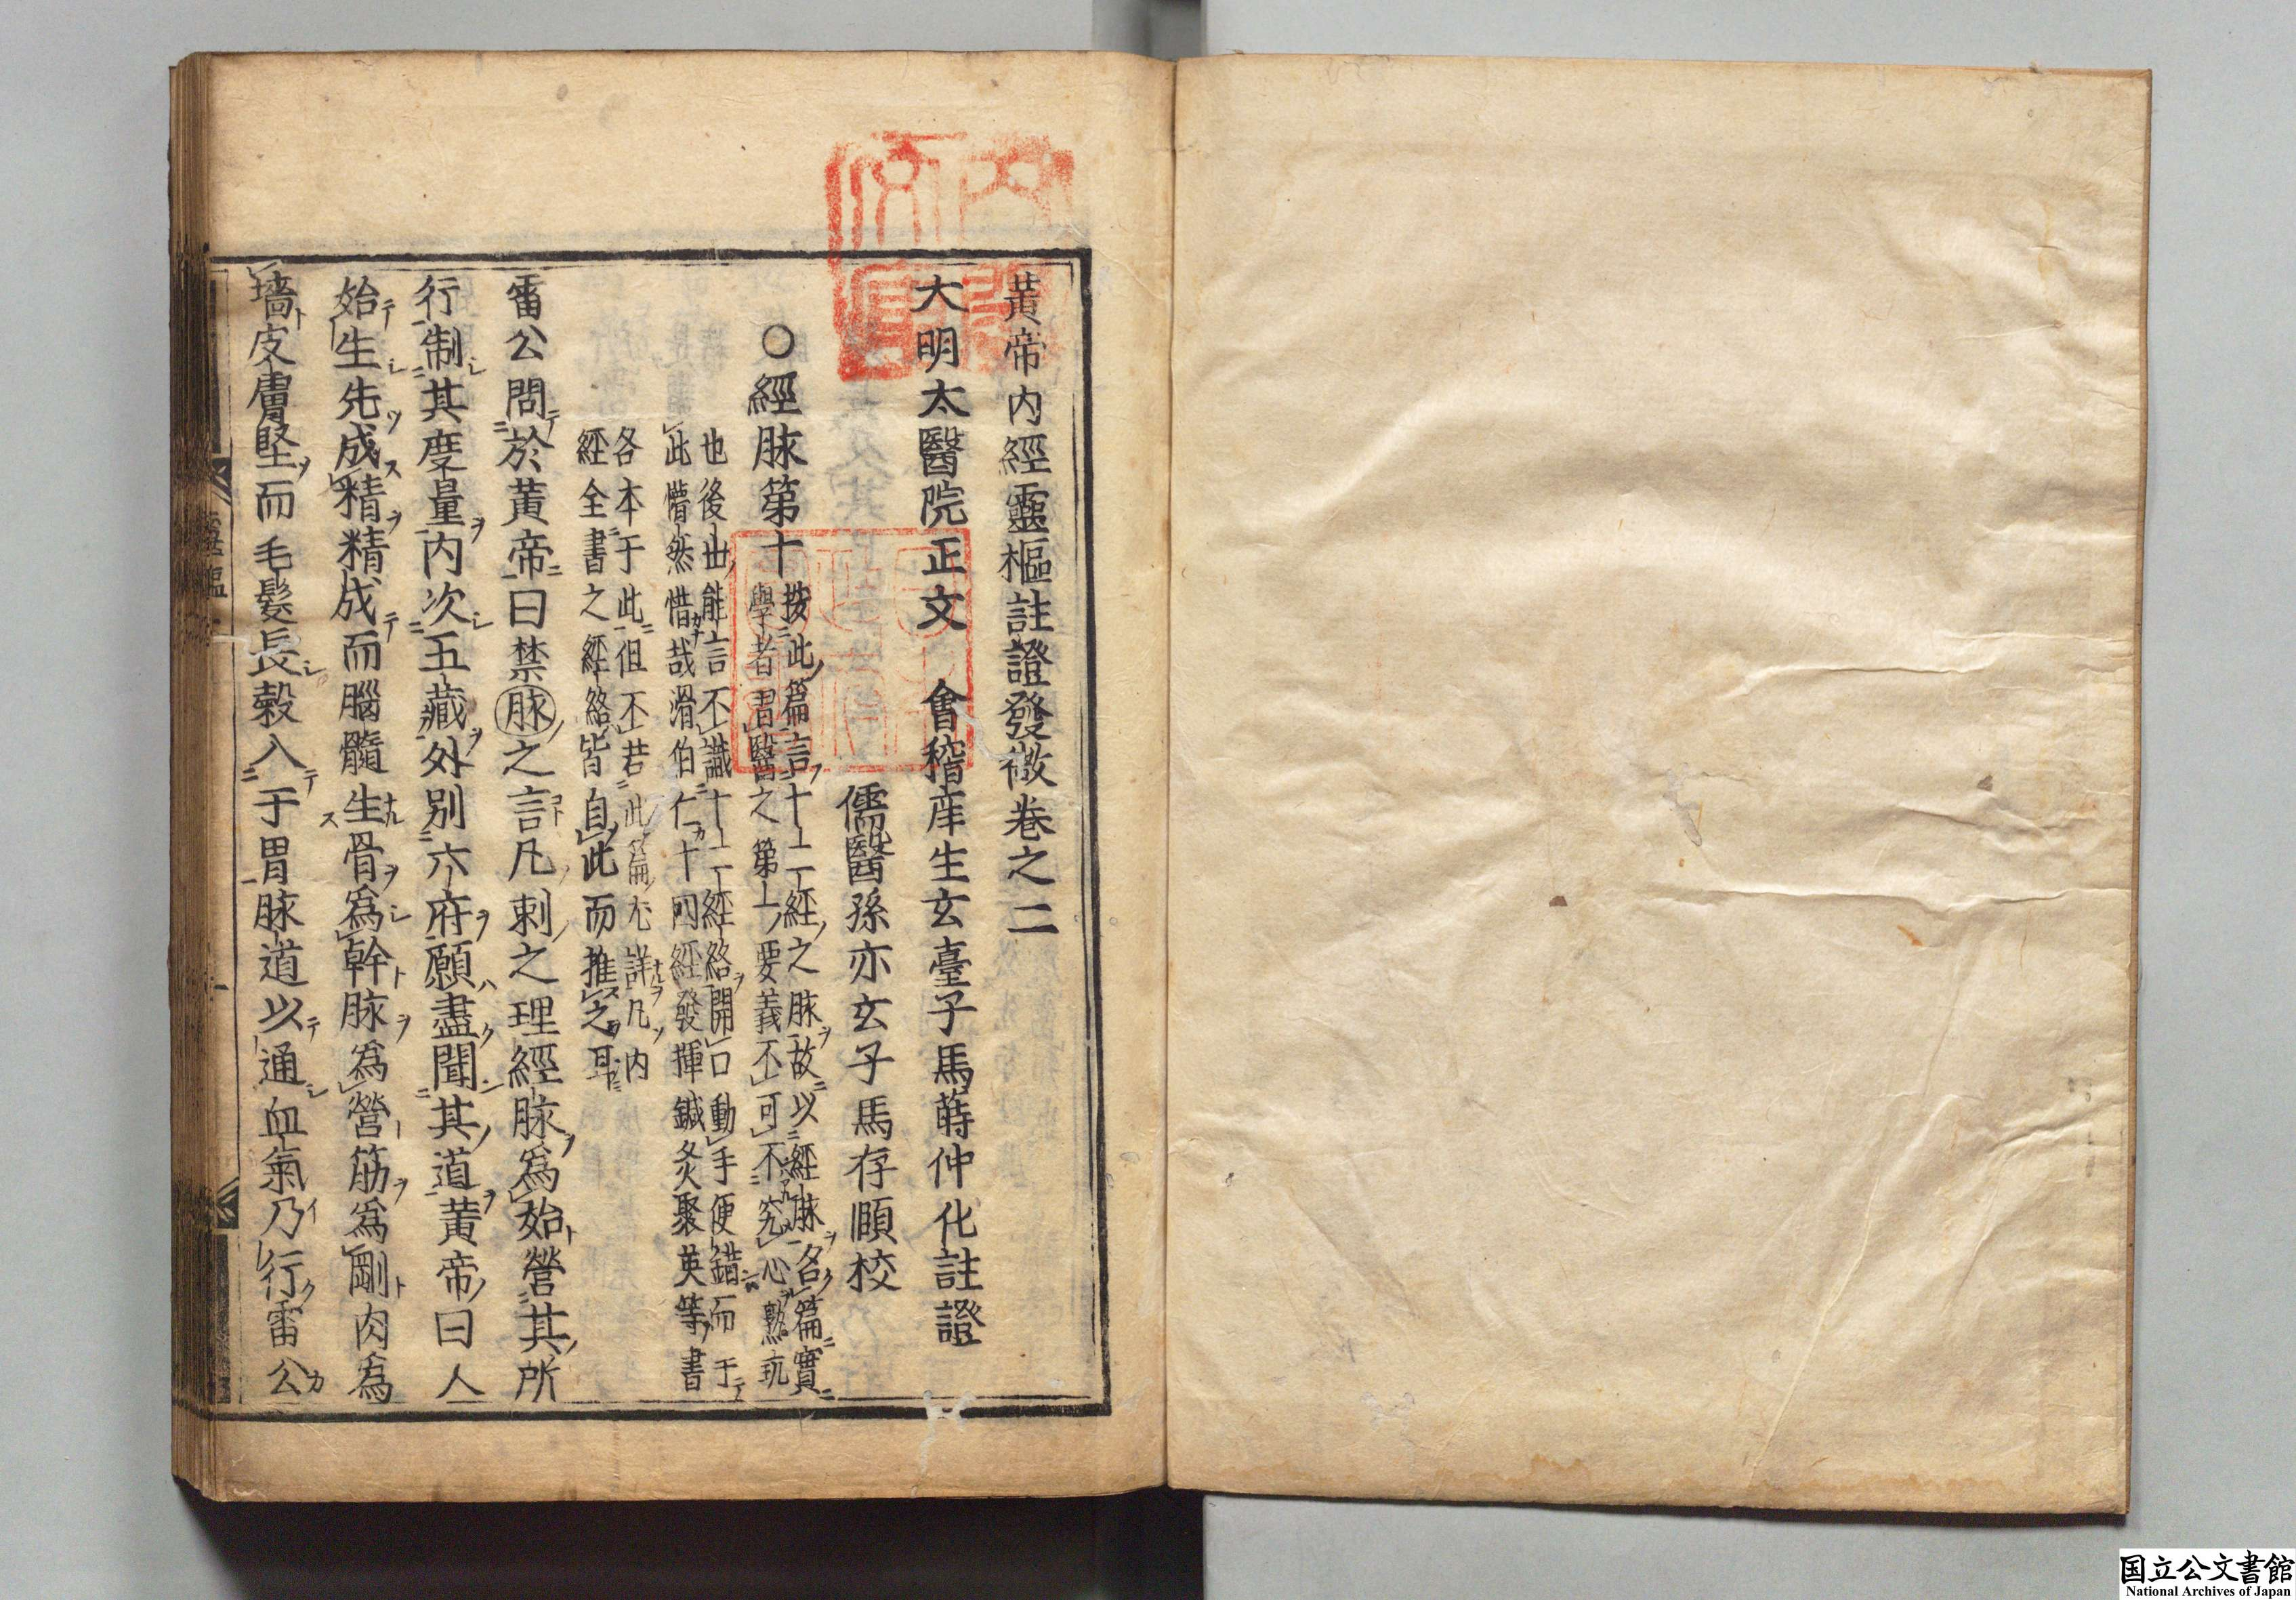 黃帝內經靈樞註證發微卷之二
大明太醫院正文　會稽庠生玄臺子馬蒔仲化註證
儒醫孫亦玄子馬存頤校
○經脉第十
按此篇言十二經之脉故以經脉名篇實
學者習醫之第一要義不可不究心熟玩
也後世能言不識十二經絡開口動手便錯而于
此懵然惜哉滑伯仁十四經發揮鍼灸聚英等書
各本于此但不若此篇尤詳凡內
經全書之經絡皆自此而推之耳
雷公問於黃帝曰禁脉之言凡刺之理經脉爲始營其所
行制其度量內次五藏外別六府願盡聞其道黃帝曰人
始生先成精精成而腦髓生骨爲幹脉爲營筋爲剛肉為
墻皮膚堅而毛髮長穀入于胃脉道以通血氣乃行雷公
靈樞
国立公文書館
National Archives of Japan